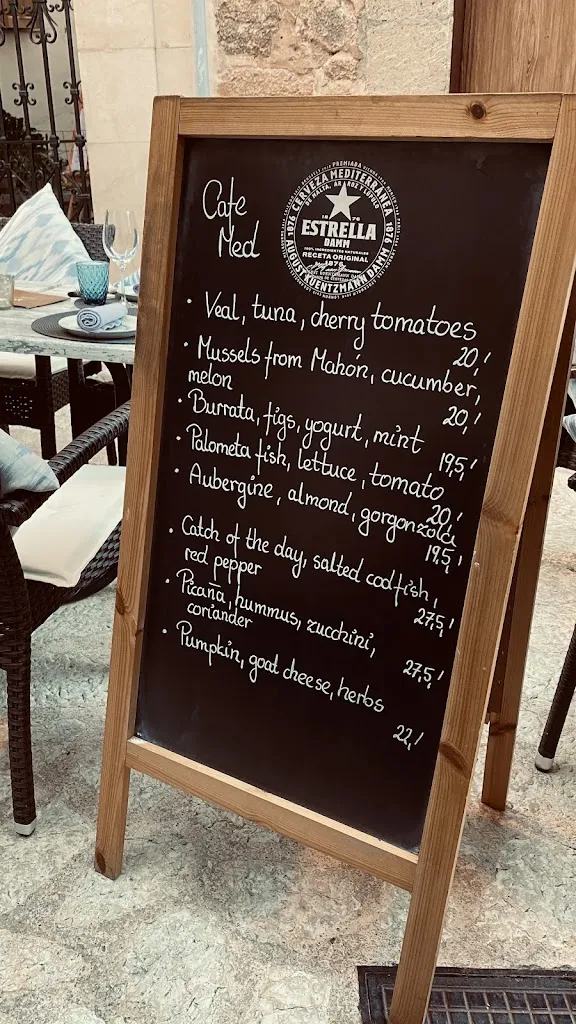 Cafe
Med
PREMIADA
CERVEZA MEDITERRÁNEA
DE MALTA, ARROZ Y LÚPULO
1876
1876
1876
ESTRELLA
DAMM
100% INGREDIENTES NATURALES
RECETA ORIGINAL
1876
AUGUST KUENTZMANN DAMM
• Veal, tuna, cherry tomatoes
20,'
• Mussels from Mahón, cucumber,
melon
20,'
• Burrata, figs, yogurt, mint
19,5,'
• Palometa fish, lettuce, tomato
20,'
• Aubergine, almond, gorgonzola
19,5,'
• Catch of the day, salted codfish,
red pepper
27,5,'
• Picaña, hummus, zucchini,
coriander
27,5,'
• Pumpkin, goat cheese, herbs
22,'